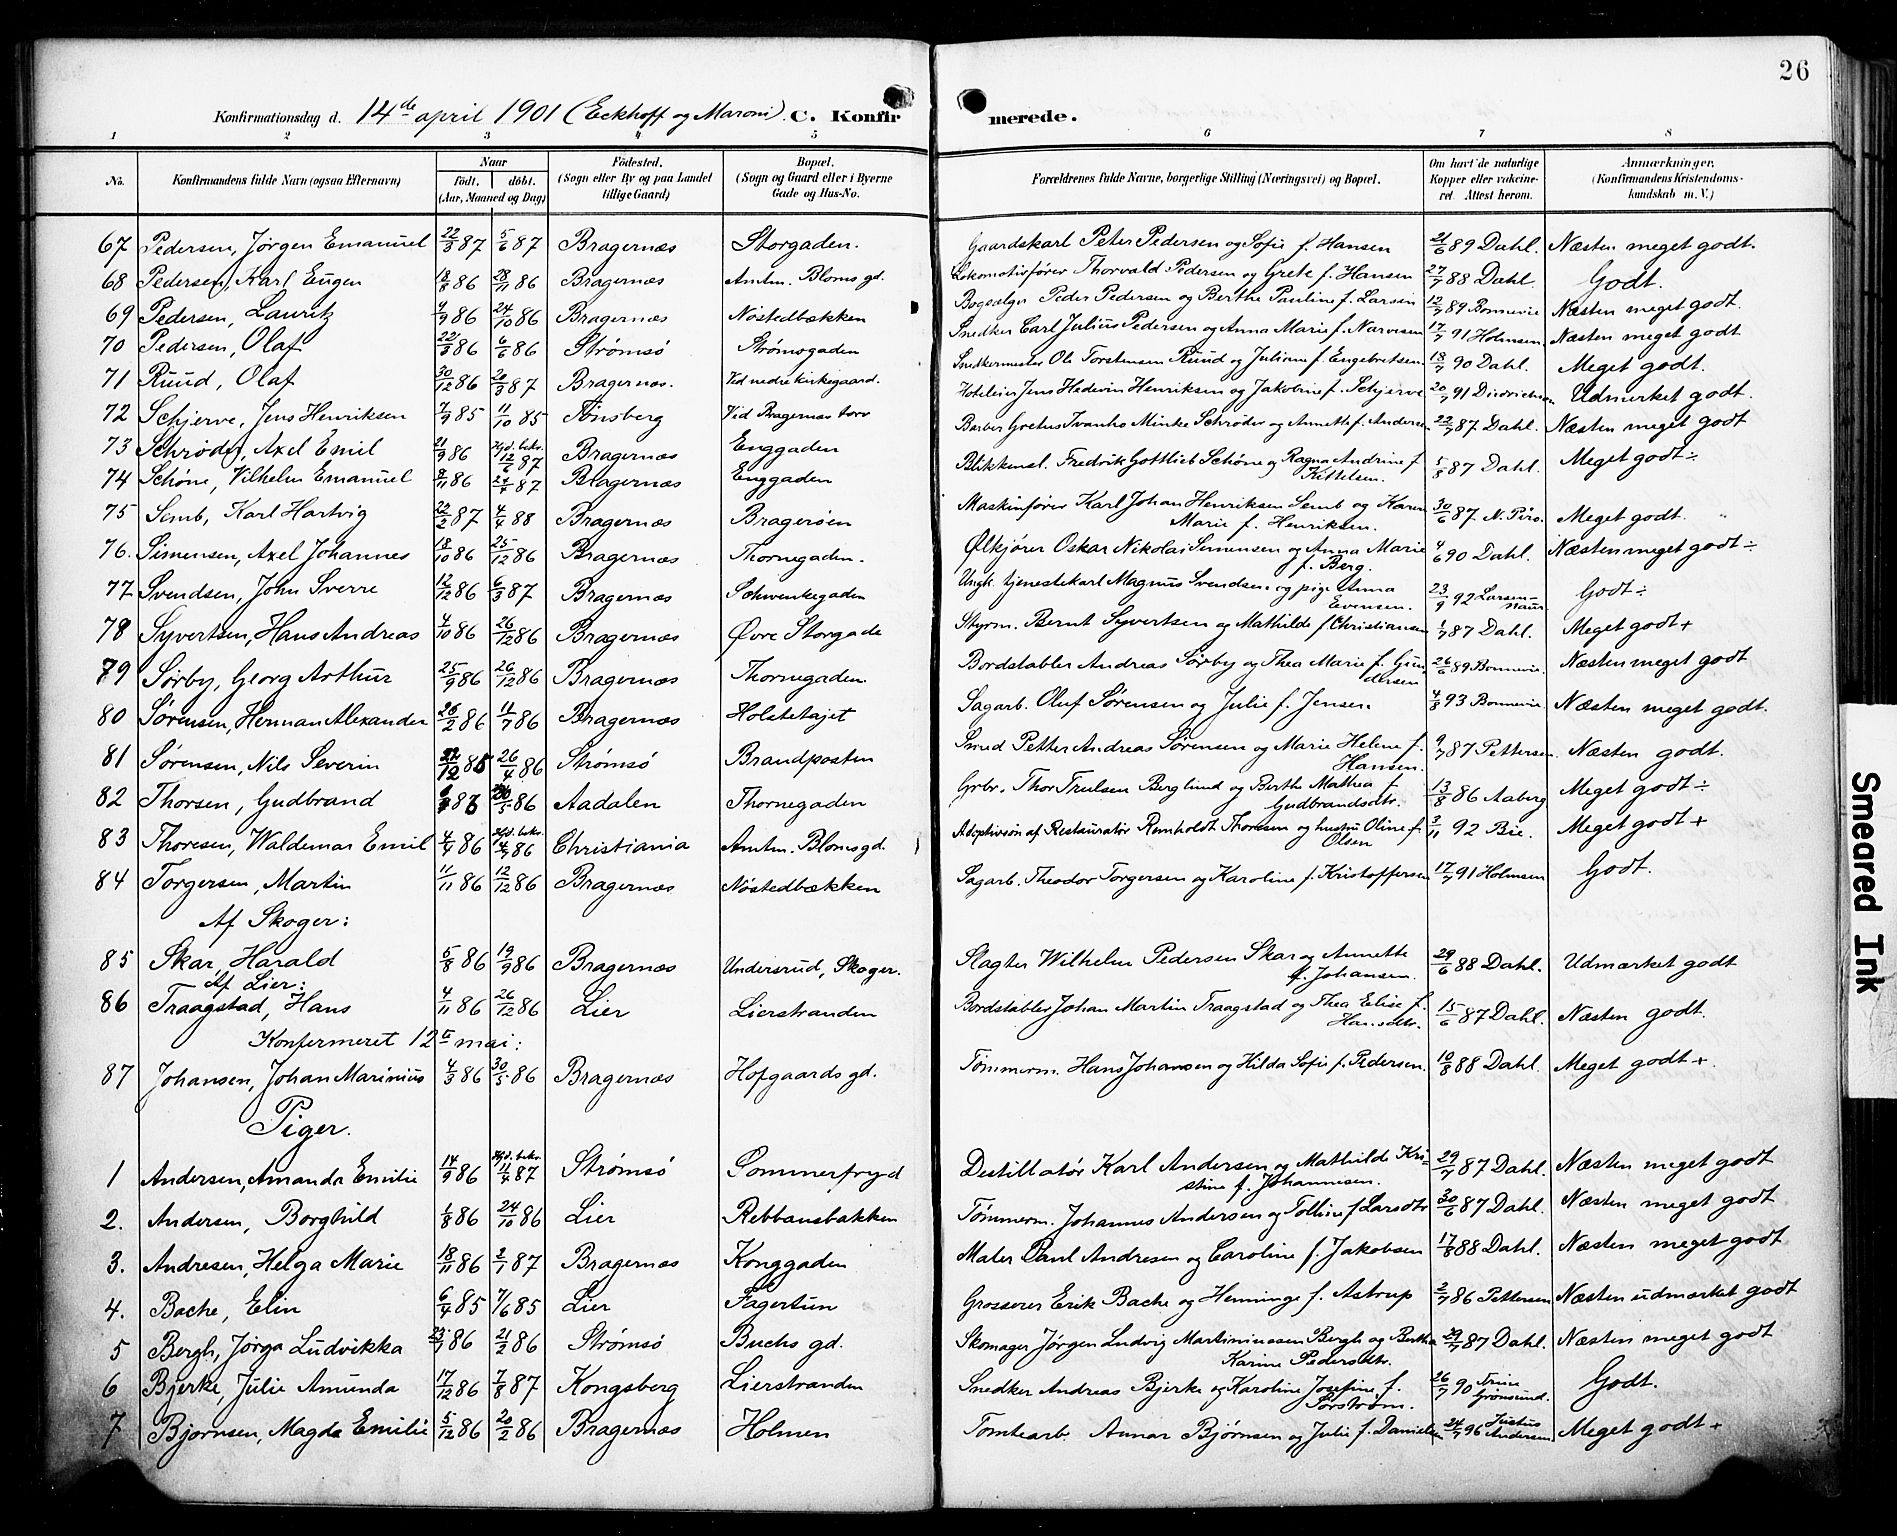 26
Konfirmationsdag d. 14de april 1901 (Eckhoff og Maroni). C. Konfirmerede.
1 2 3 4 5 6 7 8
No. Konfirmandens fulde Navn (ogsaa Efternavn) Naar født. døbt. (Aar, Maaned og Dag) Fødested. (Sogn eller By og paa Landet tillige Gaard) Bopæl. (Sogn og Gaard eller i Byerne Gade og Hus-No. Forældrenes fulde Navne, borgerlige Stilling (Næringsvei) og Bopæl. Om havt de naturlige Kopper eller vakcineret. Attest herom. Anmærkninger. (Konfirmandens Kristendomskundskab m. V.)
67 Pedersen, Jørgen Emanuel 22/3 87 5/6 87 Bragernæs Storgaden. Gaardskarl Peter Pedersen og Sofie f. Hansen 21/6 89 Dahl. Næsten meget godt.
68 Pedersen, Karl Eugen 18/8 86 28/11 86 Bragernæs Amtm. Bloms gd. Lokomotivfører Thorvald Pedersen og Grete f. Hansen 27/7 88 Dahl. Godt.
69 Pedersen, Lauritz 4/9 86 24/10 86 Bragernæs Nøstedbækken Bogsælger Peder Pedersen og Berthe Pauline f. Larsen 12/7 89 Bonnevie Næsten meget godt.
70 Pedersen, Olaf 22/3 86 6/6 86 Strømsø Strømsgaden Snedker Carl Julius Pedersen og Anna Marie f. Narvesen 17/7 91 Holmsen Næsten meget godt
71 Ruud, Olaf 30/12 86 20/3 87 Bragernæs. Ved nedre kirkegaard. Snedkermester Ole Torstensen Ruud og Juliane f. Engebretsen 18/7 90 Dahl. Meget godt.
72 Schjerve, Jens Henriksen 7/9 85 11/10 85 Tønsberg Ved Bragernæs torv Hoteleier Jens Hedevin Henriksen og Jakobine f. Schjerve 20/7 91 Diedrichson Udmerket godt.
73 Schrøder, Axel Emil 21/9 86 Hjd. bekr. 12/6 87 Bragernæs Enggaden Barber Gretus Ivanho Minke Schrøder og Annette f. Andersen 22/7 87 Dahl. Næsten meget godt
74 Schøne, Vilhelm Emanuel 8/11 86 24/4 87 Bragernæs Enggaden Blikkensl. Fredrik Gottlieb Schøne og Ragna Andrine f. Kittelsen. 5/8 87 Dahl. Meget godt ÷
75 Semb, Karl Hartvig 22/2 87 4/4 88 Bragernæs Bragerøen Maskinfører Karl Johan Henriksen Semb og Karen Marie f. Henriksen. 30/6 87 N. Piro. Meget godt.
76. Simensen, Axel Johannes 18/10 86 25/12 86 Bragernæs Thornegaden. Ølkjører Oskar Nikolai Simensen og Anna Marie f. Berg. 4/6 90 Dahl. Næsten meget godt ÷
77 Svendsen, John Sverre 12/12 86 6/3 87 Bragernæs Schwenkegaden Ungk. tjenestekarl Magnus Svendsen og pige Anna Evensen. 23/9 92 Larsen-Naur Godt ÷
78 Syvertsen, Hans Andreas 4/10 86 26/12 86 Bragernæs Øvre Storgade Styrm. Bernt Syvertsen og Mathilde f. Christiansen 1/7 87 Dahl. Meget godt +
79 Sørby, Georg Arthur 25/9 86 26/12 86 Bragernæs Thornegaden. Bordstabler Andreas Sørby og Thea Marie f. Gundersen 26/6 89 Bonnevie. Næsten meget godt
80 Sørensen, Herman Alexander 26/2 86 11/7 86 Bragernæs Holstetajet Sagarb. Oluf Sørensen og Julie f. Jensen 4/8 93 Bonnevie. Næsten meget godt.
81 Sørensen, Nils Severin 22/12 85 26/4 86 Strømsø Brandposten Smed Petter Andreas Sørensen og Marie Helene f. Hansen. 9/7 87 Pettersen Næsten godt.
82 Thorsen, Gudbrand 86 86 Aadalen Thornegaden Grbr. Thor Trulsen Berglund og Berthe Mathea f. Gudbrandsdtr. 13/8 86 Aaberg Meget godt ÷
83 Thoresen, Waldemar Emil 4/4 86 Hjd. bekr. 4/7 86 Christiania Amtm. Bloms gd. Adoptivsøn af Restauratør Reinholdt Thoresen og hustru Oline f. Olsen 3/11 92 Bie. Meget godt +
84 Torgersen, Martin 11/11 86 12/12 86 Bragernæs Nøstedbækken Sagarb. Theodor Torgersen og Karoline f. Kristoffersen 17/7 91 Holmsen Godt.
Af Skoger:
85 Skar, Harald 5/8 86 19/9 86 Bragernæs Undersrud, Skoger. Slagter Wilhelm Pedersen Skar og Annette f. Johansen. 29/6 88 Dahl. Udmærket godt
Af Lier:
86 Traagstad, Hans 4/11 86 26/12 86 Lier Lierstranden Bordstabler Johan Martin Traagstad og Thea Elise f. Hansdtr. 15/6 87 Dahl. Næsten godt.
Konfermeret 12te mai:
87 Johansen, Johan Marinius 4/3 86 30/5 86 Bragernæs Hofgaards gd. Tømmerm. Hans Johansen og Hilda Sofie f. Pedersen. 10/8 88 Dahl. Meget godt +.
Piger.
1 Andersen, Amanda Emilie 14/9 86 Hjd. bekr. 11/4 87 Strømsø Sommerfryd Destillatør Karl Andersen og Mathilde Kristine f. Johannesen. 29/7 87 Dahl. Næsten meget godt
2. Andersen, Borghild 1/8 86 24/10 86 Lier Rebbansbakken Tømmerm. Johannes Andersen og Tolline f. Larsdtr 30/6 87 Dahl. Næsten meget godt
3. Andresen, Helga Marie 18/11 86 2/1 87 Bragernæs Konggaden Maler Paul Andresen og Caroline f. Jakobsen 17/8 88 Dahl. Næsten meget godt
4. Bache, Elin 6/4 85 7/6 85 Lier Fagertun Grosserer Erik Bache og Henninge f. Astrup 2/7 86 Pettersen Næsten udmærket godt
5 Bergh, Jørga Ludvikka 86 21/2 86 Strømsø Buchs gd. Skomager Jørgen Ludvig Martiniussen Bergh og Bertha Karine Pedersdtr. 29/7 87 Dahl. Næsten meget godt
6 Bjerke, Julie Amunda 17/12 86 7/8 87 Kongsberg Lierstranden Snedker Andreas Bjerke og Karoline Josefine f. Sørstrøm. 26/7 90 Trine Grønsund. Godt.
7 Bjørnsen, Magda Emilie 5/12 86 20/2 86 Bragernæs Holmen Tomtearb. Annar Bjørnsen og Julie f. Danielsen 24/7 96 Justus Andersen Meget godt +
Smeared Ink